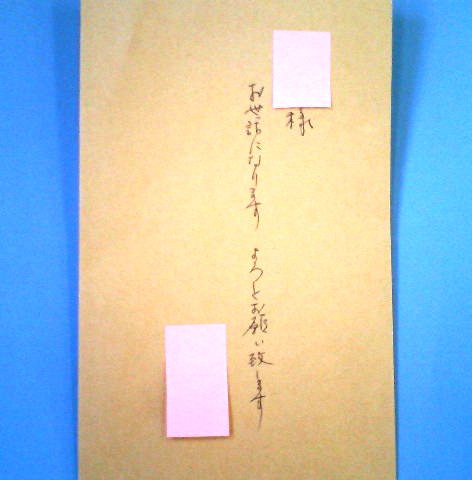 様
お世話になります　よろしくお願い致します